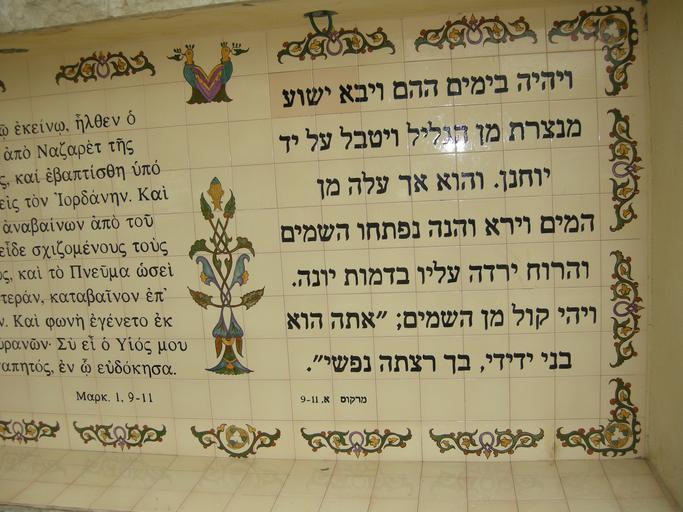 ἐκείνῳ, ἦλθεν ὁ
ἀπὸ Ναζαρὲτ τῆς
καὶ ἐβαπτίσθη ὑπό
εἰς τὸν Ἰορδάνην. Καὶ
ἀναβαίνων ἀπὸ τοῦ
εἶδε σχιζομένους τοὺς
καὶ τὸ Πνεῦμα ὡσεὶ
καταβαῖνον ἐπ'
Καὶ φωνὴ ἐγένετο ἐκ
Σὺ εἶ ὁ Υἱός μου
ἐν ᾧ εὐδόκησα.
Μαρκ. 1, 9-11
ויהיה בימים ההם ויבא ישוע
מנצרת מן הגליל ויטבל על יד
יוחנן. והוא אך עלה מן
המים וירא והנה נפתחו השמים
והרוח ירדה עליו בדמות יונה.
ויהי קול מן השמים; ״אתה הוא
בני ידידי, בך רצתה נפשי״.
מרקוס א. 9-11